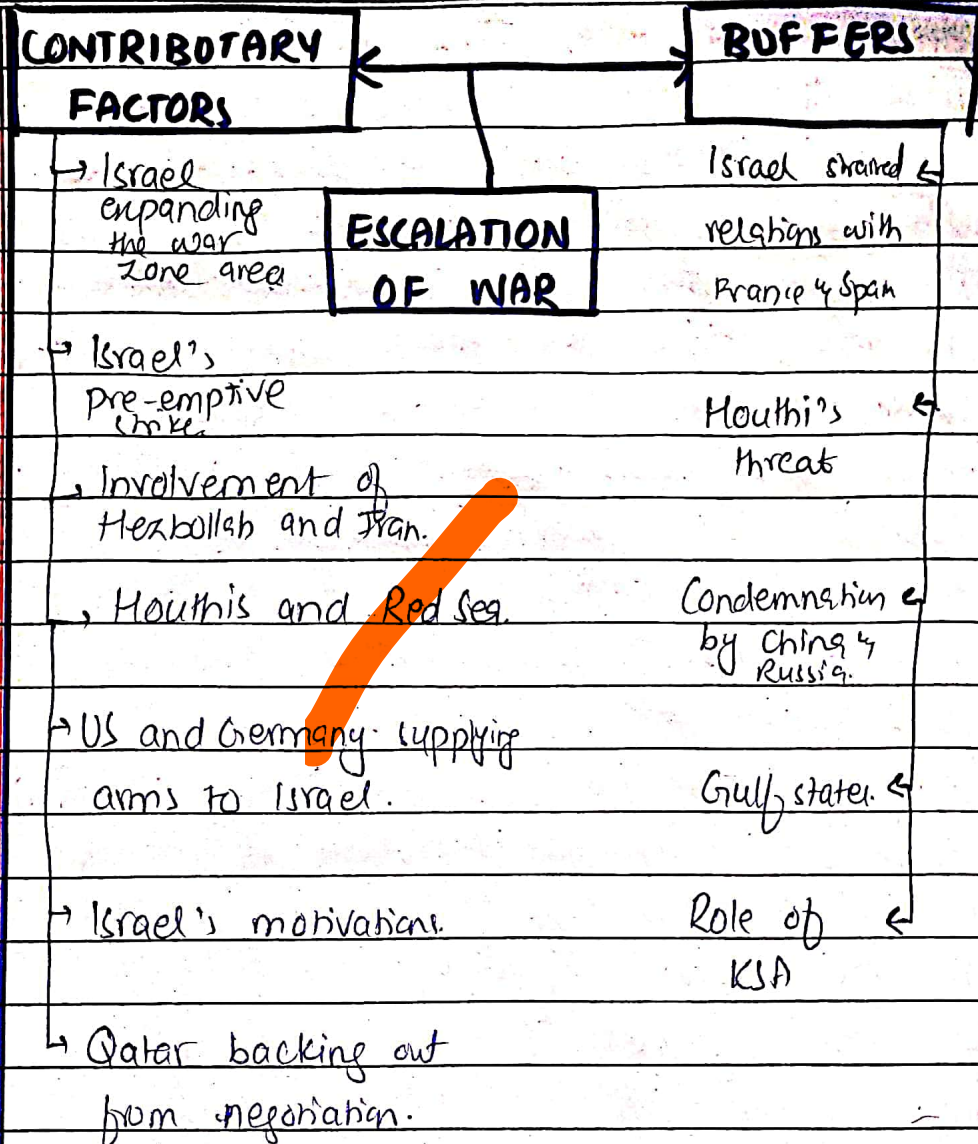 CONTRIBUTARY
FACTORS
BUFFERS
ESCALATION
OF WAR
→ Israel
expanding
the war
zone area
→ Israel's
pre-emptive
strike.
→ Involvement of
Hezbollah and Iran.
→ Houthis and Red Sea.
→ US and Germany supplying
arms to Israel.
→ Israel's motivations.
→ Qatar backing out
from negotiation.
Israel strained
relations with
France & Spain
Houthi's
threat
Condemnation
by China &
Russia.
Gulf states.
Role of
KSA